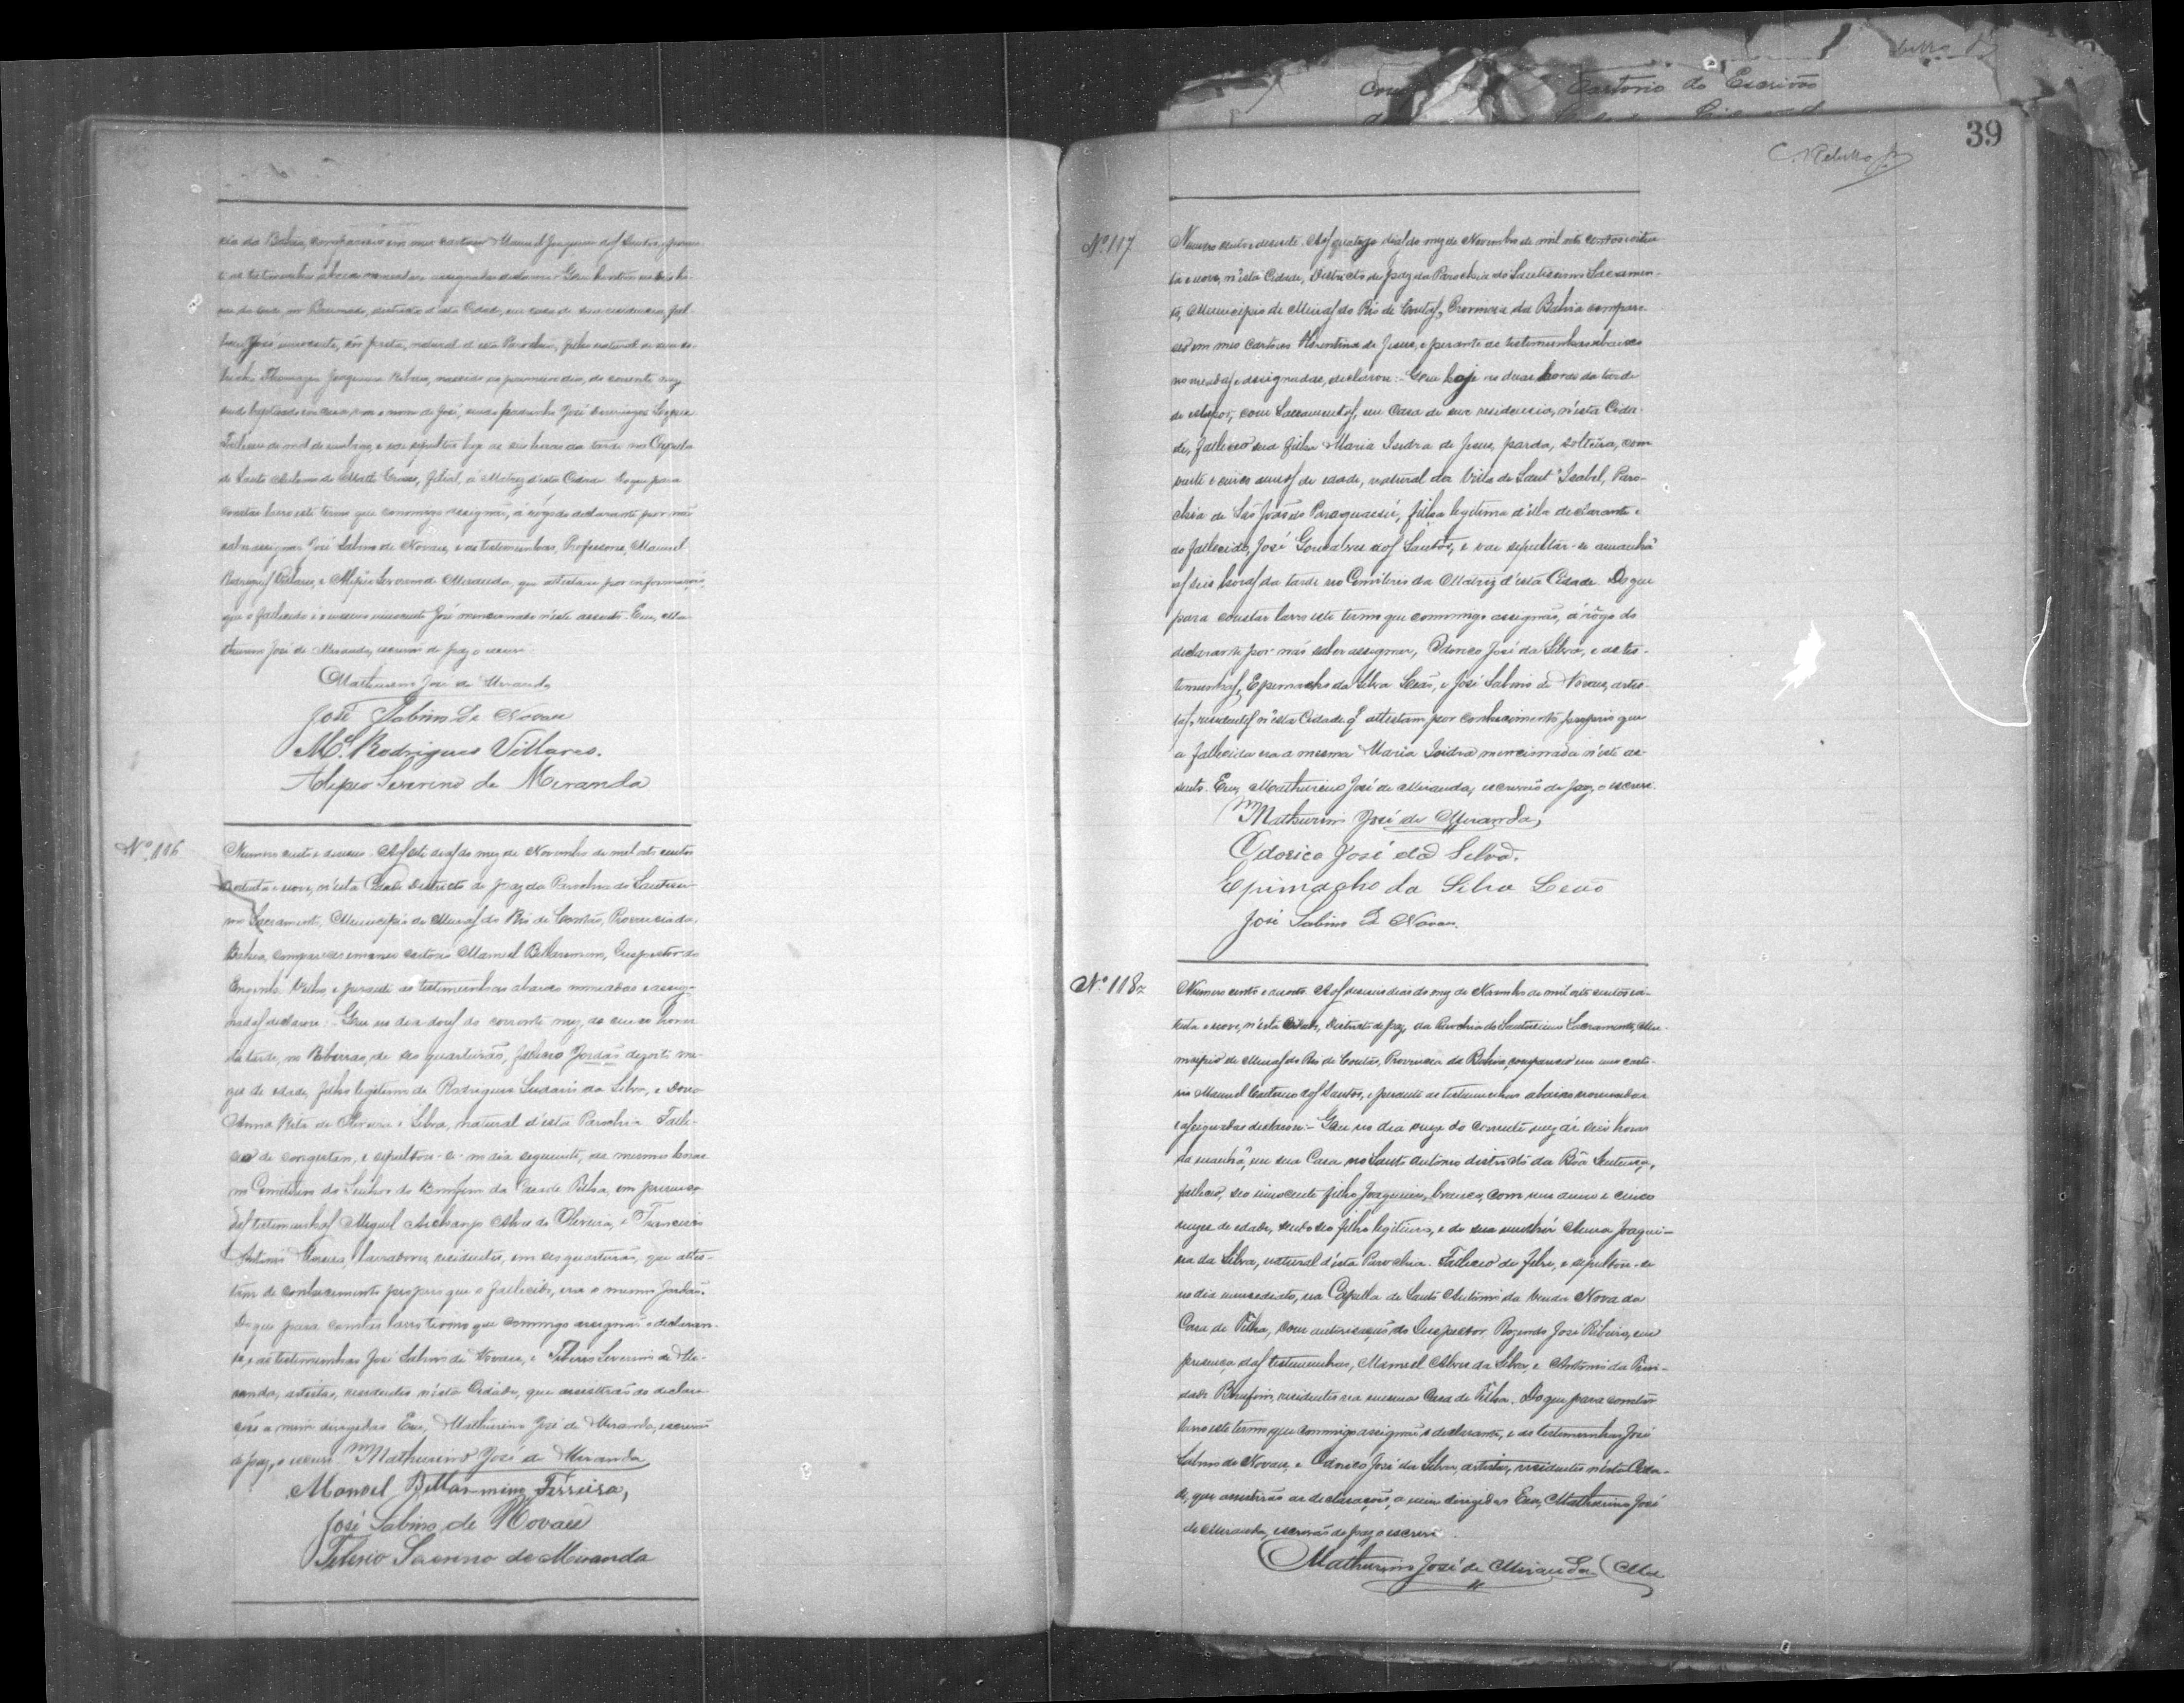 cia da Bahia, compareceo em meu cartorio Manuel Joaquim dos Santos, peran-
te as testemunhas abaixo nomeadas e assignadas declarou: Que hontem as tres ho-
ras da tarde no Brumado, districto d'esta Cidade, em casa de sua residencia, fal-
leceu José innocente, côr preta, natural d'esta Parochia, filho natural de sua so-
brinha Thomazia Joaquina Ribeiro, nascido no primeiro dia, do corrente mez
sendo baptisado em casa, com o nome de José, sendo padrinho José Domingos Lopes
Falleceu de mal de umbigo, e vae sepultar hoje as seis horas da tarde na Capella
de Santo Antonio de Matto Grosso, filial, á Matriz d'esta Cidade. Do que para
constar lavro este termo que commigo assignão, á rogo do declarante por não
saber assignar José Sabino de Novaes, e as testemunhas, Professores, Manuel
Rodrigues Villares, e Alipio Severino de Miranda, que attestam por informações
que o fallecido é o mesmo innocente José mencionado n'este assento. Eu, Ma-
thurino José de Miranda, escrivão de paz o escrevi.
Mathurino José de Miranda
José Sabino de Novaes
Mel. Rodrigues Villares.
Alipio Severino de Miranda
Nº 116
Numero cento e deseseis. Aos sete dias do mez de Novembro de mil oito centos
oitenta e nove, n'esta Cidade Districto de paz da Parochia do Santissi-
mo Sacramento, Municipio de Minas do Rio de Contas, Provincia da
Bahia, compareceo em meu cartorio Manuel Bellarmino, Inspector do
Engenho Velho, e perante as testemunhas abaixo nomeadas e assig-
nadas declarou: Que no dia dous do corrente mez, as cinco horas
da tarde, no Riberão, de seo quarteirão, falleceo Jordão dezoito me-
zes de edade, filho legitimo de Rodrigues Ludario da Silva, e Dona
Anna Rita de Oliveira e Silva, natural d'esta Parochia. Falle-
ceo de congestam, e sepultou-se no dia seguinte, as mesmas horas
no Cemiterio do Senhor do Bomfim da Casa de Telha, em presença
das testemunhas Miguel Archanjo Alves de Oliveira, e Francisco
Antonio Moreira, lavradores, residentes, em seo quarteirão, que attes-
tam de conhecimento proprio que o fallecido, era o mesmo Jordão.
Do que para constar lavro termo que commigo assignão o declaran-
te, e as testemunhas José Sabino de Novaes, e Tiberio Severino de Mi-
randa, artistas, residentes n'esta Cidade, que assistirão as declara-
ções a mim dirigidas Eu, Mathurino José de Miranda, escrivão
de paz, o escrevi Mathurino José de Miranda
Manoel Bellarmino Ferreira,
José Sabino de Novaes
Tiberio Severino de Miranda
39
C. Rebello Jr
Cartorio do Escrivão
Nº 117
Numero cento e desesete. Aos quatorze dias do mez de Novembro de mil oito centos e oiten-
ta e nove, n'esta Cidade, Districto de paz da Parochia do Santissimo Sacramen-
to, Municipio de Minas do Rio de Contas, Provincia da Bahia compare-
ceo em meo cartorio Florentina de Jesus, e perante as testemunhas abaixo
nomeadas e assignadas, declarou: Que hoje as duas horas da tarde
de estupor, com Sacramentos, em Casa de sua residencia, n'esta Cida-
de, falleceo sua filha Maria Isidra de Jesus, parda, solteira, com
vinte e cinco annos de edade, natural da Villa de Sant'Isabel, Paro-
chia de São João do Paraguassú, filha legitima d'ella declarante e
do fallecido, José Gonçalves dos Santos, e vae sepultar-se amanhã
as seis horas da tarde no Cemiterio da Matriz d'esta Cidade. Do que
para constar lavro este termo que commigo assignão, á rôgo do
declarante por não saber assignar, Odorico José da Silva, e as tes-
temunhas, Epimacho da Silva Leão, e José Sabino de Novaes, artis-
tas, residentes n'esta Cidade q attestam por conhecimento proprio que
a fallecida era a mesma Maria Isidra mencionada n'este as-
sento. Eu, Mathurino José de Miranda, escrivão de paz, o escrevi.
Mathurino José de Miranda,
Odorico José da Silva.
Epimacho da Silva Leão
José Sabino de Novaes.
Nº 118
Numero cento e desoito. Aos deseseis dias do mez de Novembro de mil oito centos oi-
tenta e nove, n'esta Cidade, Districto de paz, da Parochia do Santissimo Sacramento, Mu-
nicipio de Minas do Rio de Contas, Provincia da Bahia, compareceo em meo carto-
rio Manuel Caetano dos Santos, e perante as testemunhas abaixo nomeadas
e assignadas declarou:- Que no dia onze do corrente mez ás seis horas
da manhã, em sua Casa no Santo Antonio districto da Bôa Sentença,
falleceo, seo innocente filho Joaquim, branco, com um anno e cinco
mezes de edade, sendo seo filho legitimo, e de sua mulhér Anna Joaqui-
na da Silva, natural d'esta Parochia. Falleceo de febre, e sepultou-se
no dia immediato, na Capella de Santo Antonio da Venda Nova da
Casa de Telha, com autorisação do Inspector Rozendo José Ribeiro, em
presença das testemunhas, Manuel Alves da Silva, e Antonio da Trin-
dade Bomfim, residentes na mesma Casa de Telha. Do que para constar
lavro este termo que commigo assignão o declarante, e as testemunhas José
Sabino de Novaes, e Odorico José da Silva, artistas, residentes n'esta Cida-
de, que assistirão as declarações, a mim dirigidas Eu, Mathurino José
de Miranda, escrivão de paz o escrevi.
Mathurino José de Miranda (Ma